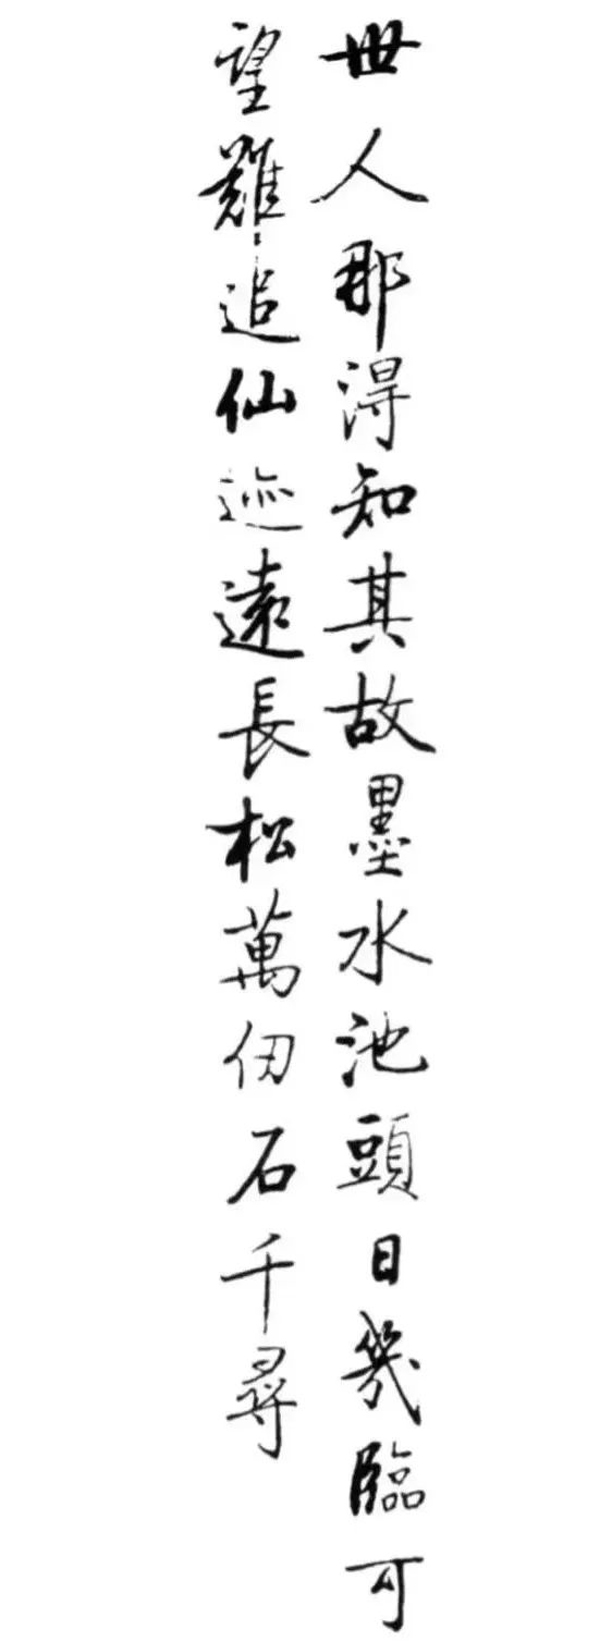 世人那得知其故墨水池頭日幾臨可
望難追仙迹遠長松萬仞石千尋